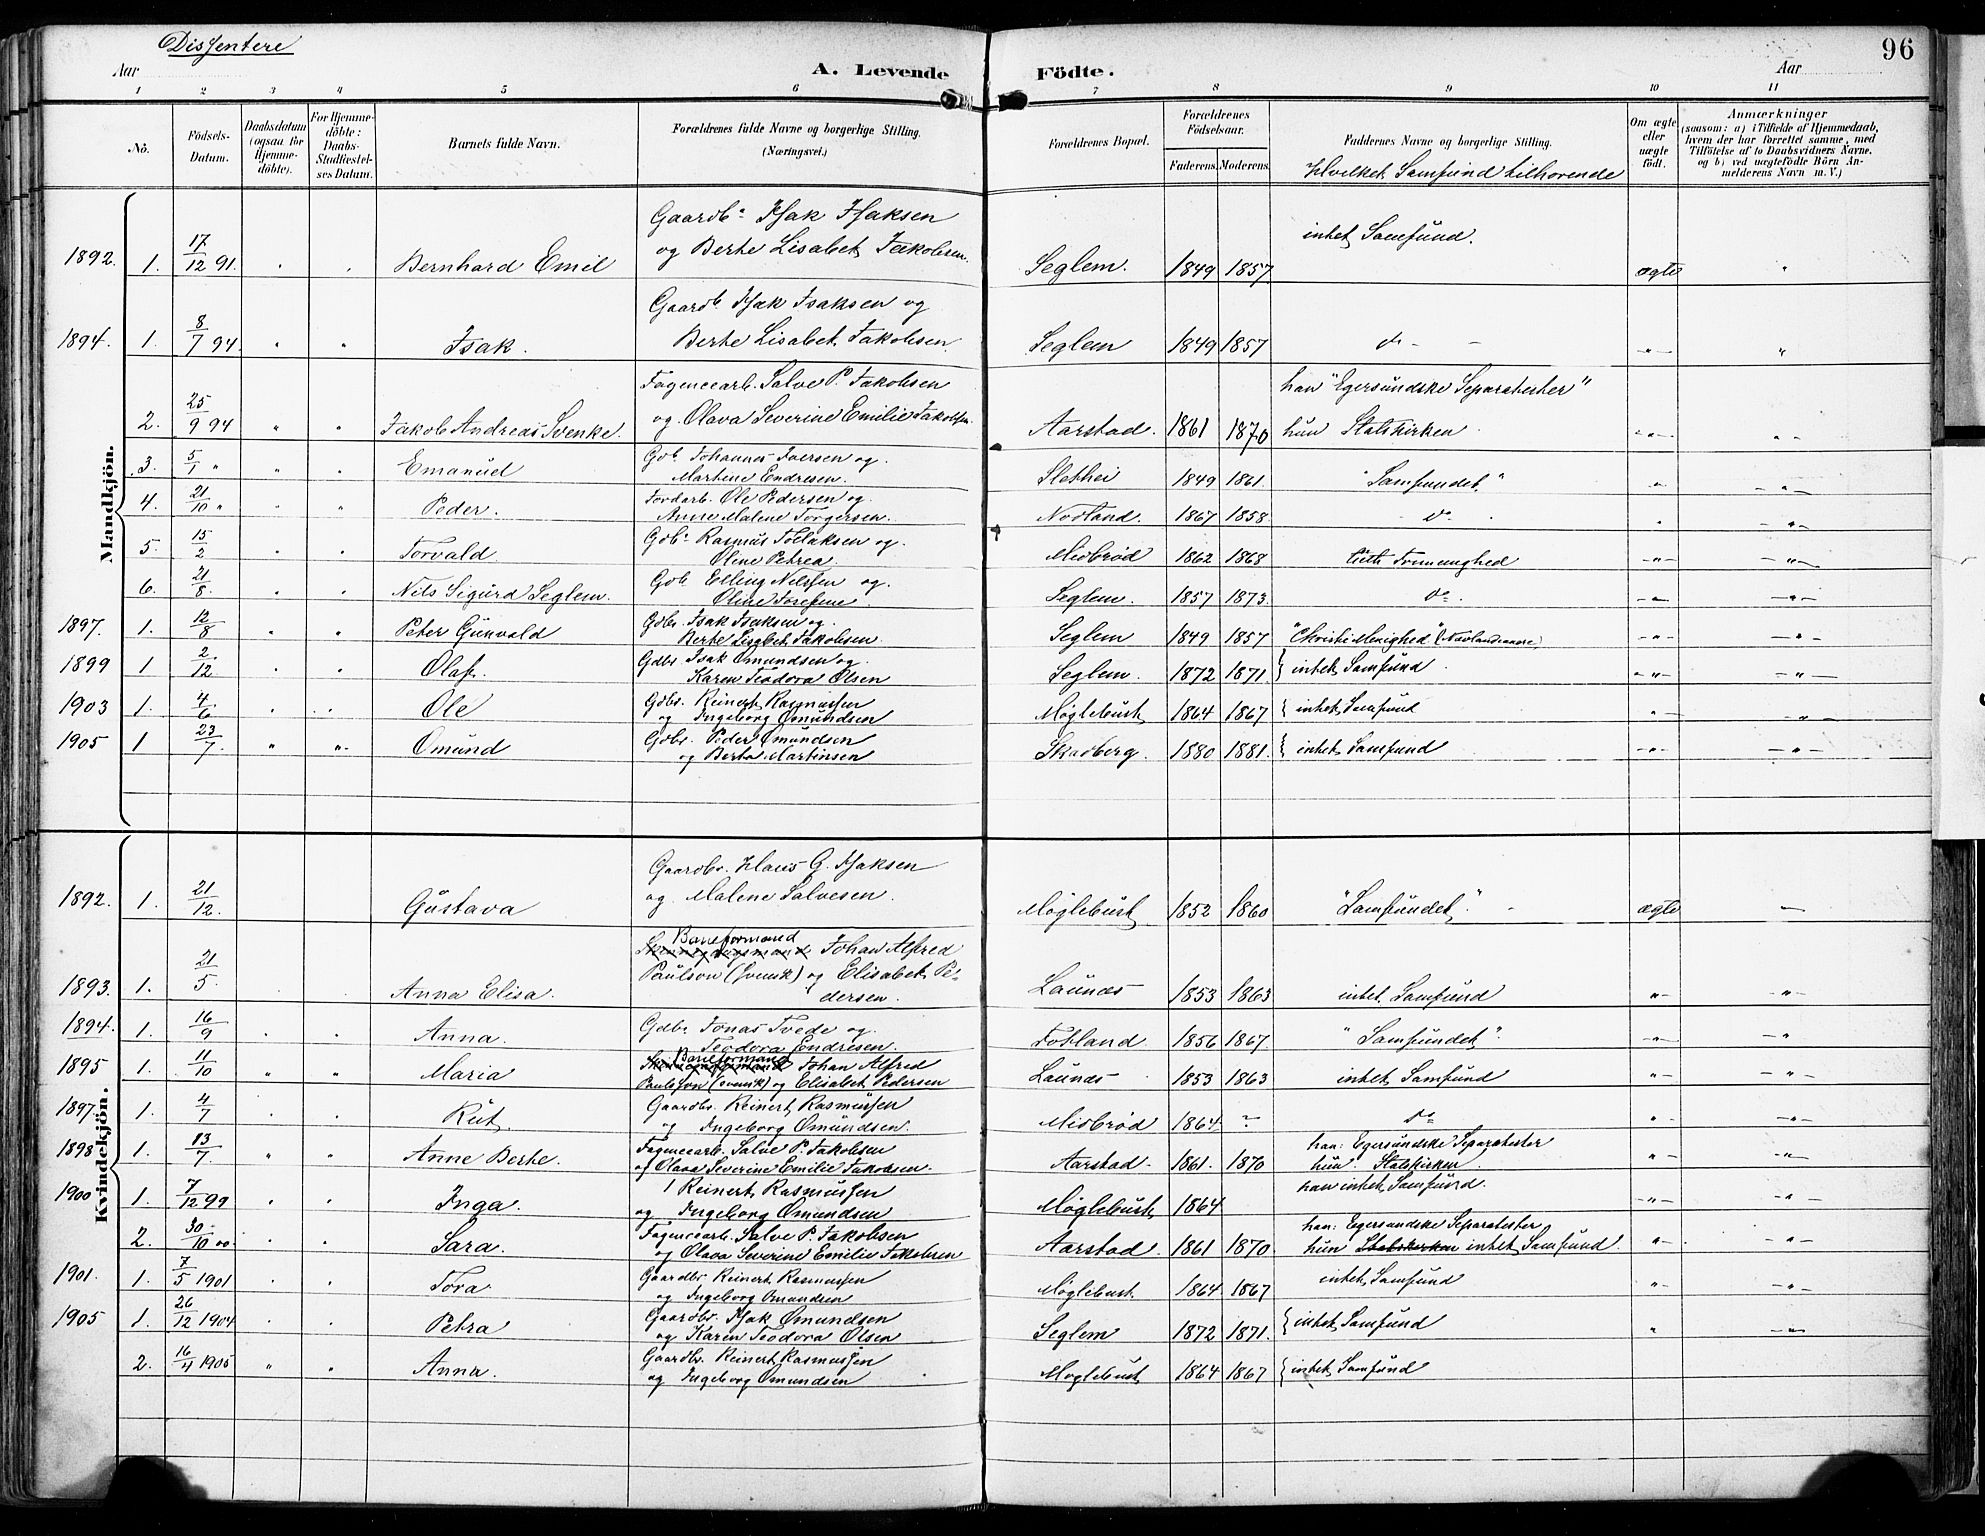 Dissentere
96
Aar
A. Levende Födte.
Aar
1 2 3 4 5 6 7 8 9 10 11
No.
Födsels-Datum.
Daabsdatum (ogsaa for Hjemme-döbte).
For Hjemme-döbte: Daabs-Stadfæstel-ses Datum.
Barnets fulde Navn.
Forældrenes fulde Navne og borgerlige Stilling. (Næringsvei.)
Forældrenes Bopæl.
Forældrenes Födselsaar.
Faderens. Moderens.
Faddernes Navne og borgerlige Stilling.
Hvilket Samfund tilhørende
Om ægte eller uægte födt.
Anmærkninger
(saasom: a) i Tilfælde af Hjemmedaab, hvem der har forrettet samme, med Tilföielse af to Daabsvidners Navne, og b) ved uægtefödte Börn An-melderens Navn m. V.)
Mandkjön.
1892. 1. 17/12 91. Bernhard Emil Gaardb. Isak Isaksen
og Berte Lisabet Jakobsen. Seglem. 1849 1857 intet Samfund. ægte "
1894. 1. 8/7 94. " " Isak. Gaardb. Isak Isaksen og
Berte Lisabet Jakobsen. Seglem 1849 1857 do - -"- "
2. 25/9 94 " " Jakob Andreas Svenke. Fagencearb. Salve P. Jakobsen
og Olava Severine Emilie Jakobsen. Aarstad. 1861 1870 han "Egersundske Separatister"
hun Statskirken -"- -"-
3. 5/1 " " " Emanuel Gdb. Johannes Iversen og
Martine Endresen. Slethei 1849 1861. "Samfundet" " -"-
4. 21/10 " " " Peder. Jordarb. Ole Pedersen og
Anne Malene Torgersen. Nodland. 1867 1858 do " -"-
5. 15/2 " " Torvald Gdb. Rasmus Tollaksen og
Oline Petrea Midbrød 1862 1868 Luth Frimenighed -"- -"-
6. 21/8. " " Nils Sigurd Seglem. Gdb Elling Nilssen og
Oline Josefine. Seglem. 1857 1873. do. -"- -"-
1897. 1. 12/8 " " Peter Gunvald Gdbr. Isak Isaksen og
Berte Lisabet Jakobsen. Seglem 1849 1857 "Christi Menighed" -"- -"-
1899 1 2/12 " " Olaf. Gdbr. Isak Omundsen og
Karen Teodora Olsen Seglem. 1872 1871. { intet Samfund. -"- -"-
1903 1. 4/6 " " Ole Gdbr. Reinert Rasmussen
og Ingeborg Omundsen Møglebust 1864 1867 { intet Samfund " -"-
1905 1 23/7. " " Omund Gdbr. Peder Omundsen
og Berta Martinsen Skadberg. 1880 1881. { intet Samfund -"- -"-
Kvindekjön.
1892. 1. 21/12. Gustava Gaardbr. Klaus G. Isaksen
og Malene Salvesen. Møglebust 1852 1860 "Samfundet". ægte -
1893. 1. 21/5. Anna Elisa. Baneformand Johan Alfred
Paulson (svensk) og Elisabet Pe-
dersen. Launes 1853 1863 intet Samfund -"- -"-
1894. 1. 16/9 Anna. Gdbr Jonas Tvede og
Teodora Endresen. Fotland 1856 1867. "Samfundet" -"- -"
1895 1. 11/10 " " Maria Baneformand Johan Alfred
Paulsson (svensk) og Elisabet Pedersen Launes 1853 1863 intet Samfund " -"-
1897. 1. 4/7 Rut. Gaardbr. Reinert Rasmussen
og Ingeborg Omundsen. Midbrød 1864 ~ do " -"-
1898. 1. 13/7. " " Anne Berte. Fagencearb. Salve P. Jakobsen
og Olava Severine Emilie Jakobsen. Aarstad. 1861. 1870 han: Egersundske Separatister
hun: Statskirken. " -"-
1900 1. 7/12 99 " " Inga. Reinert Rasmussen
og Ingeborg Omundsen Møglebust 1864 han intet Samfund. -"- -"-
2. 30/10 00. " " Sara. Fagencearb. Salve P. Jakobsen
og Olava Severine Emilie Jakobsen Aarstad 1861 1870 han: Egersundske Separatister
hun Statskirken intet Samfund. " -"-
1901. 1. 7/5 1901 Tora. Gaardbr. Reinert Rasmussen
og Ingeborg Omundsen Møglebust 1864 1867 intet Samfund " -"-
1905 1. 26/12 1904 Petra Gaardbr. Isak Omundsen
og Karen Teodora Olsen Seglem 1872 1871. { intet Samfund " -"-
2. 16/4 1905 " " Anna. Gaardbr. Reinert Rasmussen
og Ingeborg Omundsen Møglebust 1864 1867 { intet Samfund